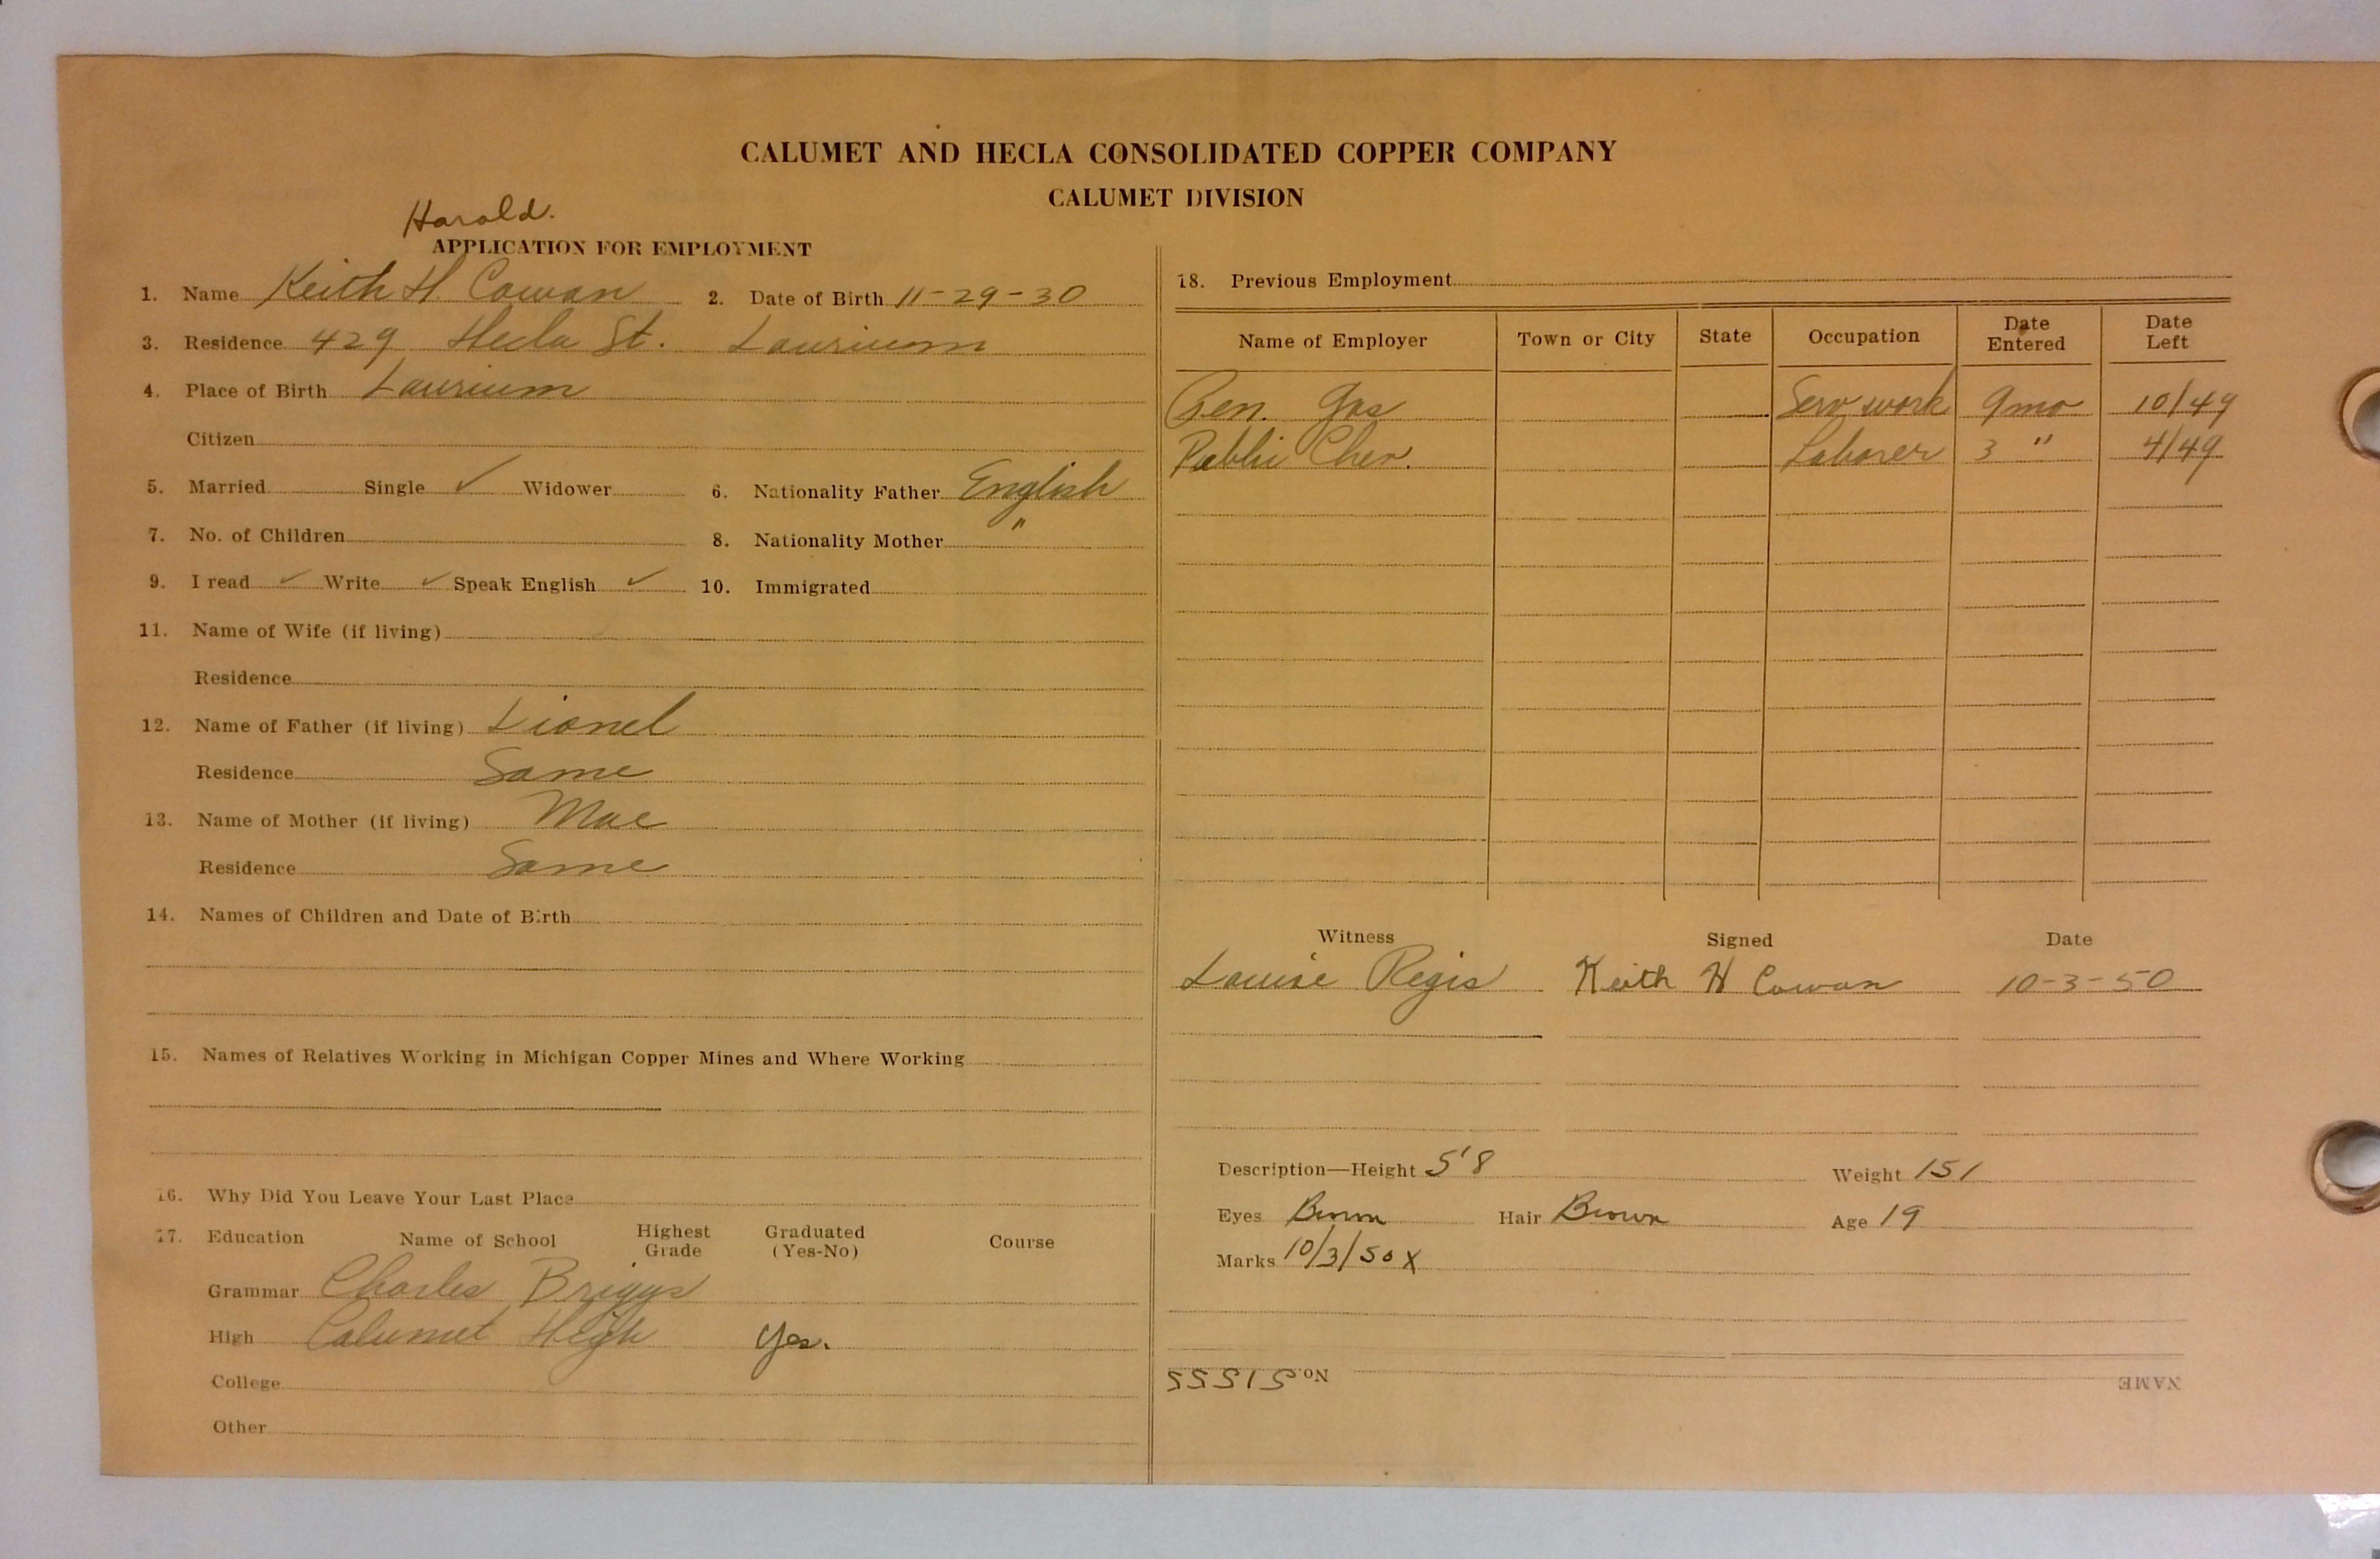 CALUMET AND HECLA CONSOLIDATED COPPER COMPANY
CALUMET DIVISION
Harold.
APPLICATION FOR EMPLOYMENT
1. Name Keith H. Cowan 2. Date of Birth 11-29-30
3. Residence 429 Hecla St. Laurium
4. Place of Birth Laurium
Citizen
5. Married Single ✓ Widower 6. Nationality Father English
7. No. of Children 8. Nationality Mother "
9. I read ✓ Write ✓ Speak English ✓ 10. Immigrated
11. Name of Wife (if living)
Residence
12. Name of Father (if living) Lionel
Residence Same
13. Name of Mother (if living) Mae
Residence Same
14. Names of Children and Date of Birth
15. Names of Relatives Working in Michigan Copper Mines and Where Working
16. Why Did You Leave Your Last Place
17. Education Name of School Highest Grade Graduated (Yes-No) Course
Grammar Charles Briggs
High Calumet High Yes.
College
Other
18. Previous Employment
Name of Employer Town or City State Occupation Date Entered Date Left
Gen. Gas Serv work 9mo 10/49
Public Cher. Laborer 3 " 4/49
Witness Signed Date
Louise Regis Keith H Cowan 10-3-50
Description—Height 5'8 Weight 151
Eyes Brown Hair Brown Age 19
Marks 10/3/50 X
No. 51555 NAME